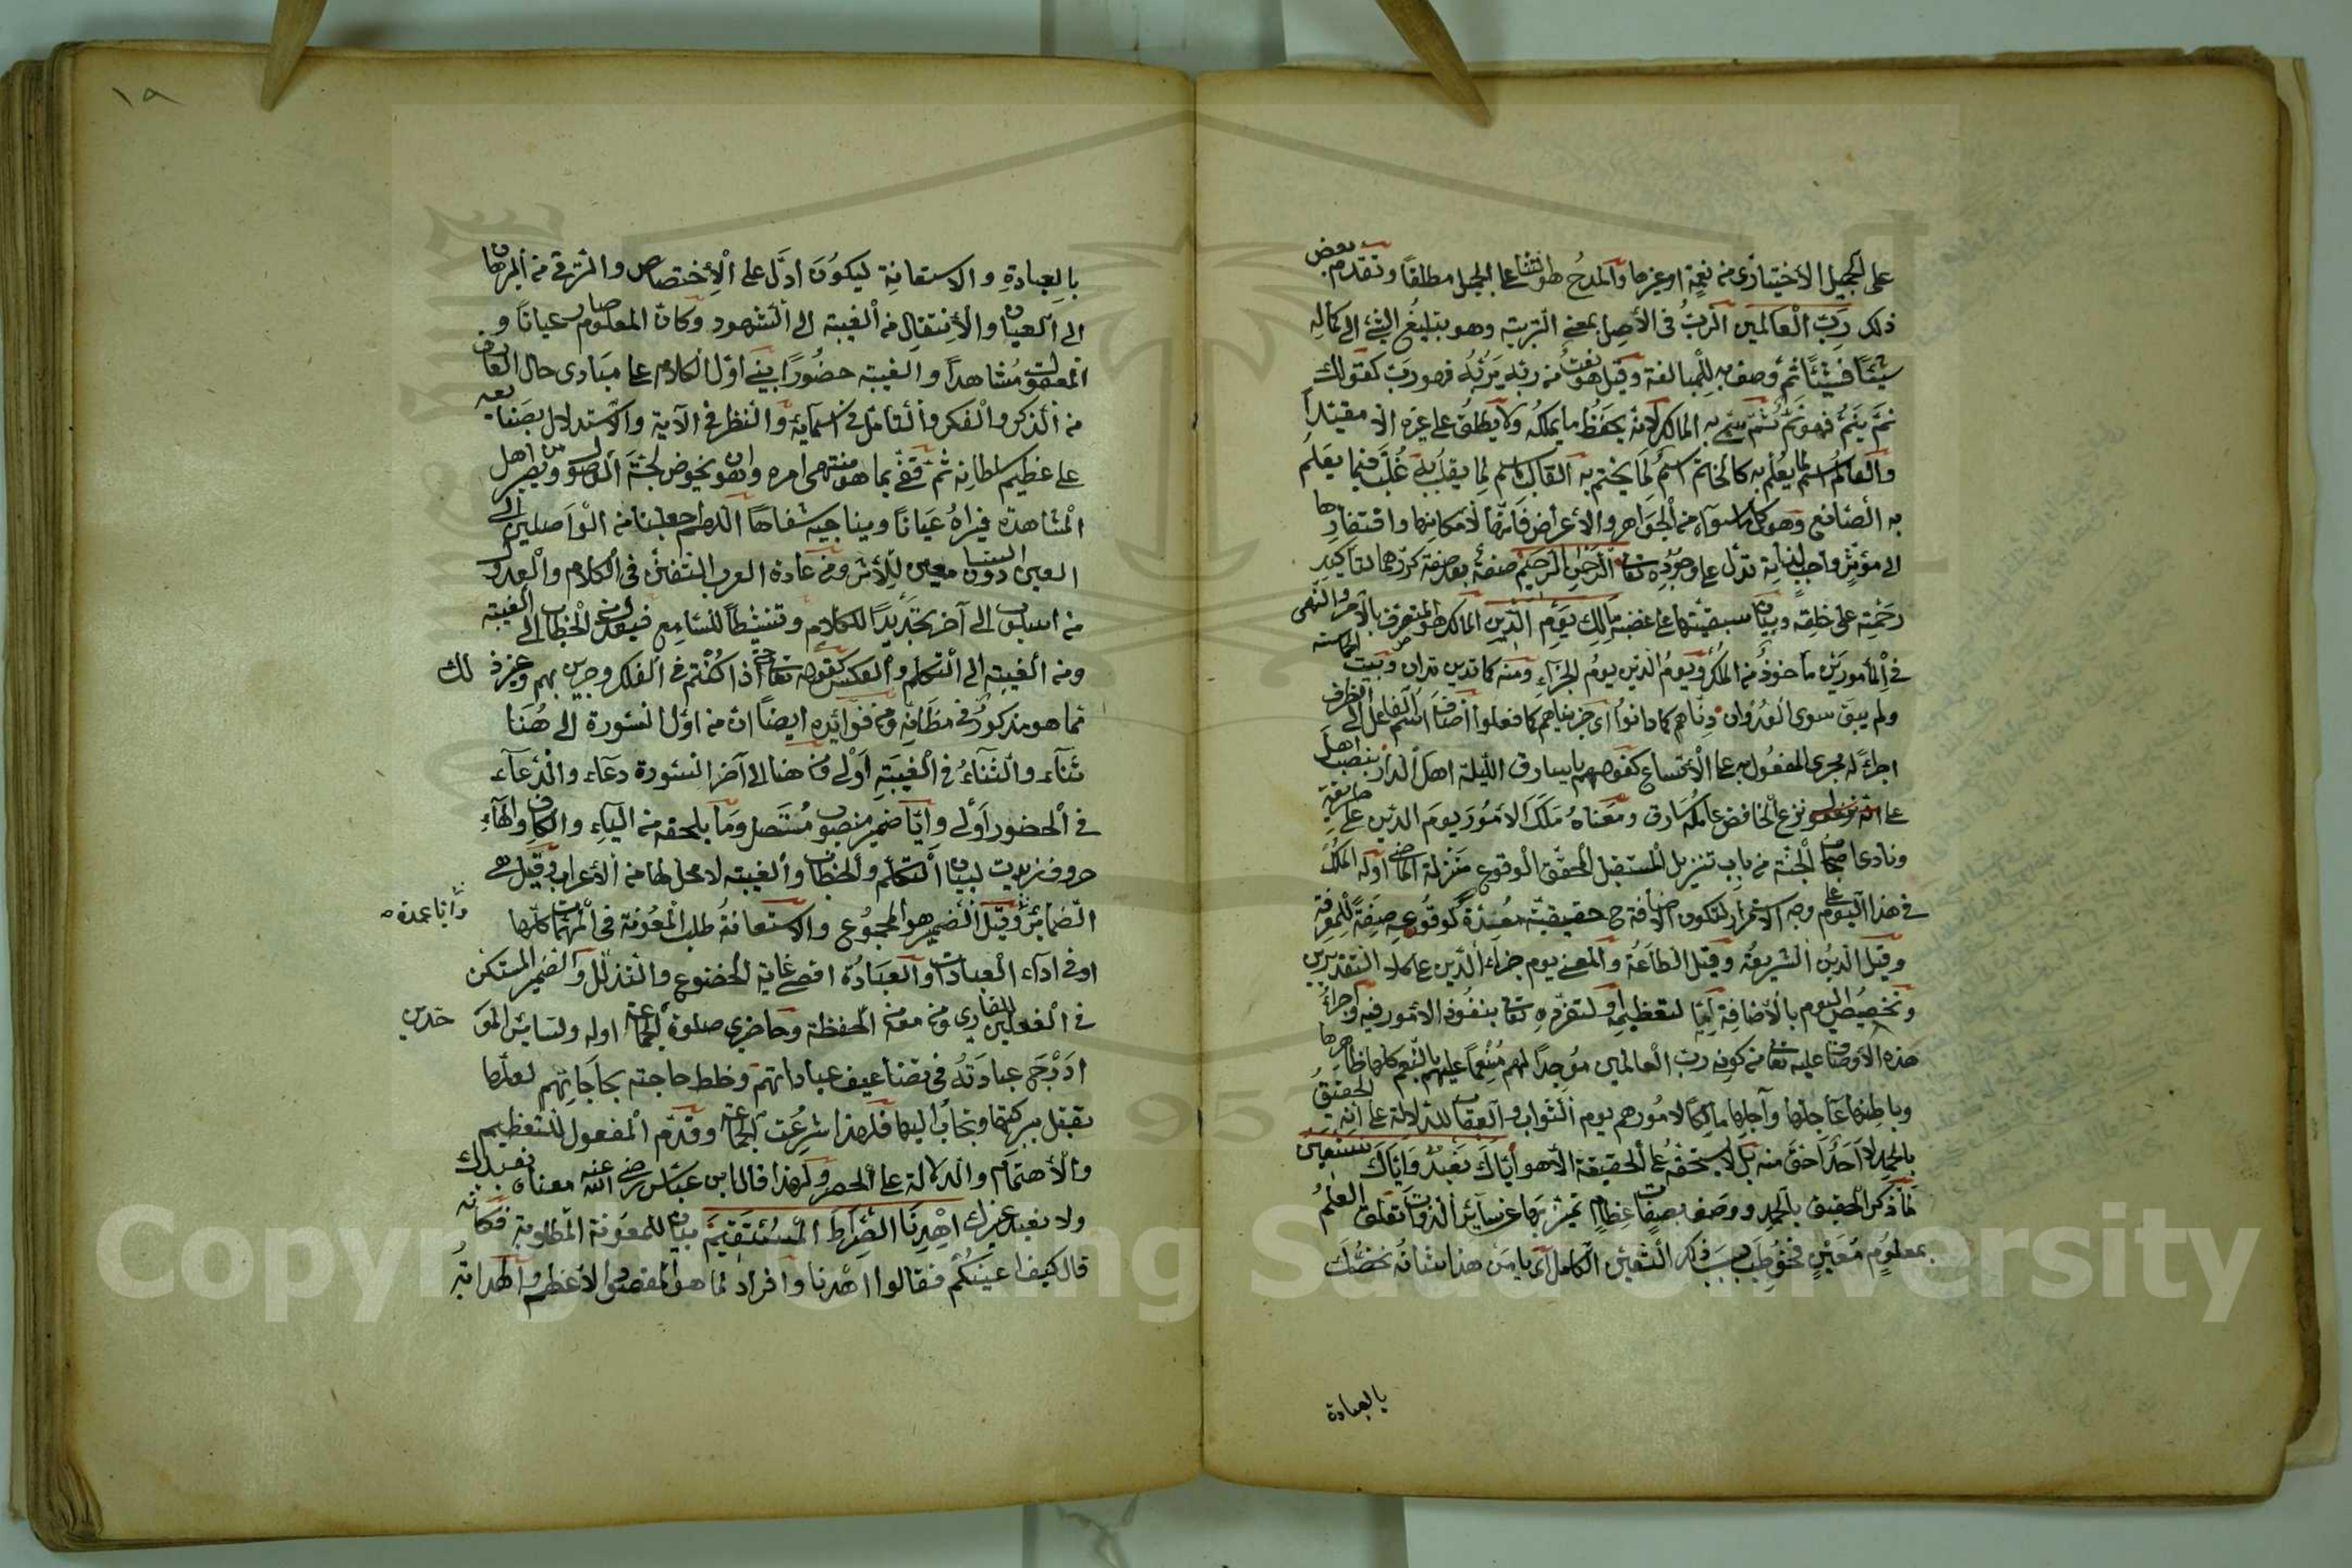 على الجميل الاختيارى من نعمة او غيرها والمدح هو الثنا على الجميل مطلقا وتقدم بعض
ذلك رب العالمين الرب فى الاصل بمعنى التربية وهو تبليغ الشئ الى كماله
شيئا فشيئا ثم وصف به للمبالغة وقيل هو نعت من ربه يربه فهو رب كقولك
نم ينم فهو نم ثم سمى به المالك لانه يحفظ ما يملكه ولا يطلق على غيره الا مقيدا
والعالم اسم لما يعلم به كالخاتم اسم لما يختم به القالب اسم لما يقلب به غلب فيما يعلم
به الصانع وهو كل ما سواه من الجواهر والاعراض فانها لامكانها وافتقارها
الى مؤثر واجب لذاته تدل على وجوده تعالى الرحمن الرحيم صفة بعد صفة كررهما لتاكيد
رحمته على خلقه وبيان سبقيتها على غضبه مالك يوم الدين المالك هو المتصرف بالامر والنهى
فى المأمورين مأخوذ من الملك ويوم الدين يوم الجزاء ومنه كما تدين تدان وبيت الحماسة
ولم يبق سوى العدوان دناهم كما دانوا اى جزيناهم كما فعلوا اضافة اسم الفاعل الى الظرف
اجراء له مجرى المفعول به على الاتساع كقولهم يا سارق الليلة اهل الدار بنصب اهل
على نزع الخافض عامله سارق ومعناه ملك الامور يوم الدين على طريقة
ونادى اصحاب الجنة من باب تنزيل المستقبل المحقق الوقوع منزلة الماضى او له الملك
فى هذا اليوم على وجه الاستمرار لتكون الاضافة ح حقيقية معدة لوقوعه صفة للمعرفة
وقيل الدين الشريعة وقيل الطاعة والمعنى يوم جزاء الدين على كلا التقديرين
وتخصيص اليوم بالاضافة اما لتعظيمه او لتفرده تعالى بنفوذ الامور فيه واجراء
هذه الاوصاف عليه تعالى من كونه رب العالمين موجدا لهم منعما عليهم بالنعم كلها ظاهرها
وباطنها عاجلها وآجلها مالكا لامورهم يوم الثواب والعقاب للدلالة على انه الحقيق
بالحمد لا احد احق منه بل لا يستحقه على الحقيقة الا هو اياك نعبد واياك نستعين
لما ذكر الحقيق بالحمد ووصف بصفات عظام تميز بها عن سائر الذوات تعلق العلم
بمعلوم معين فخوطب بسبب ذلك التعين الكامل اى يا من هذا شانه نخصك
بالعبادة
١٩
بالعبادة والاستعانة ليكون ادل على الاختصاص والترقى من البرهان
الى العيان والانتقال من الغيبة الى الشهود وكان المعلوم صار عيانا و
المعقول مشاهدا والغيبة حضورا بنى اول الكلام على مبادى حال العارف
من الذكر والفكر والتامل فى اسمائه والنظر فى الآئه والاستدلال بصنائعه
على عظيم سلطانه ثم قفى بما هو منتهى امره وهو ان يخوض لجة الوصول ويصير من اهل
المشاهدة فيراه عيانا ويناجيه شفاها اللهم اجعلنا من الواصلين الى
العين دون السامعين للاثر ومن عادة العرب التفنن فى الكلام والعدول
من اسلوب الى آخر تجديدا للكلام وتنشيطا للسامع فيعدل من الخطاب الى الغيبة
ومن الغيبة الى التكلم وبالعكس كقوله تعالى حتى اذا كنتم فى الفلك وجرين بهم وغير ذلك
مما هو مذكور فى مظانه ومن فوائده ايضا ان من اول السورة الى هنا
ثناء والثناء فى الغيبة اولى ومن هنا الى آخر السورة دعاء والدعاء
فى الحضور اولى وايا ضمير منصوب متصل وما يلحقه من الياء والكاف والهاء
حروف زيدت لبيان التكلم والخطاب والغيبة لا محل لها من الاعراب وقيل هى
الضمائر وايا عمدة وقيل الضمير هو المجموع والاستعانة طلب المعونة فى المهمات كلها
او فى اداء العبادات والعبادة اقصى غاية الخضوع والتذلل والضمير المستكن
فى الفعلين للقارى ومن معه من الحفظة وحاضرى صلوة الجماعة او له ولسائر الموحدين
ادرج عبادته فى تضاعيف عباداتهم وخلط حاجته بحاجاتهم لعلها
تقبل ببركتها وتجاب اليها فلهذا شرعت الجماعة وقدم المفعول للتعظيم
والاهتمام والدلالة على الحصر ولهذا قال ابن عباس رضى الله عنه معناه نعبدك
ولا نعبد غيرك اهدنا الصراط المستقيم بيان للمعونة المطلوبة فكانه
قال كيف اعينكم فقالوا اهدنا وافراد لما هو المقصود الاعظم والهداية